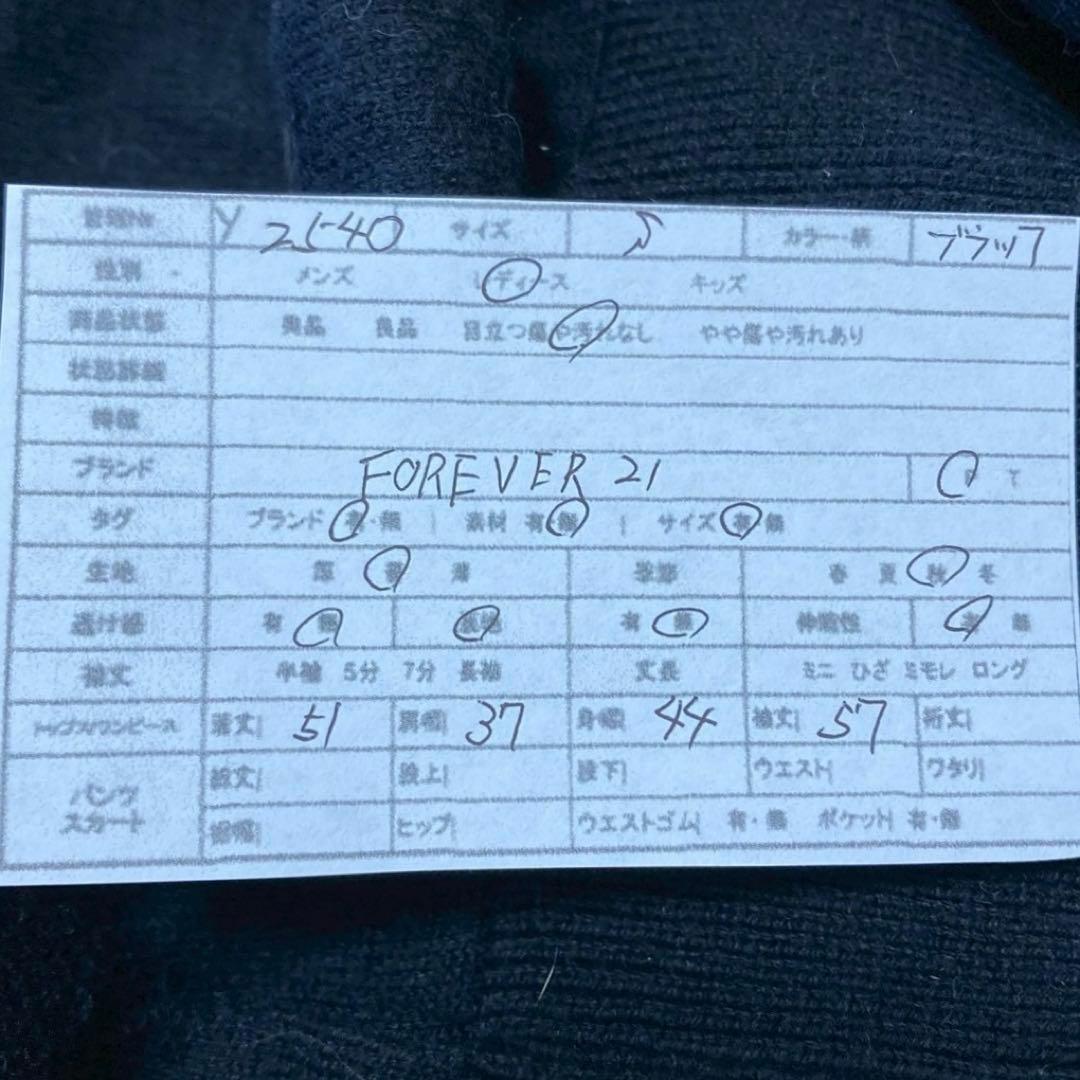 Y 2540 サイズ S カラー・柄 ブラック
性別 メンズ レディース キッズ
商品状態 美品 良品 目立つ傷や汚れなし やや傷や汚れあり
状態詳細
特徴
ブランド FOREVER 21
タグ ブランド 有・無 | 素材 有・無 | サイズ 有・無
生地 厚 普 薄 季節 春 夏 秋 冬
透け感 有 無 裏地 有 無 伸縮性 有 無
袖丈 半袖 5分 7分 長袖 丈長 ミニ ひざ ミモレ ロング
トップス/ワンピース 着丈| 51 肩幅| 37 身幅| 44 袖丈| 57 裄丈|
パンツ スカート 総丈| 股上| 股下| ウエスト| ワタリ|
裾幅| ヒップ| ウエストゴム| 有・無 ポケット| 有・無